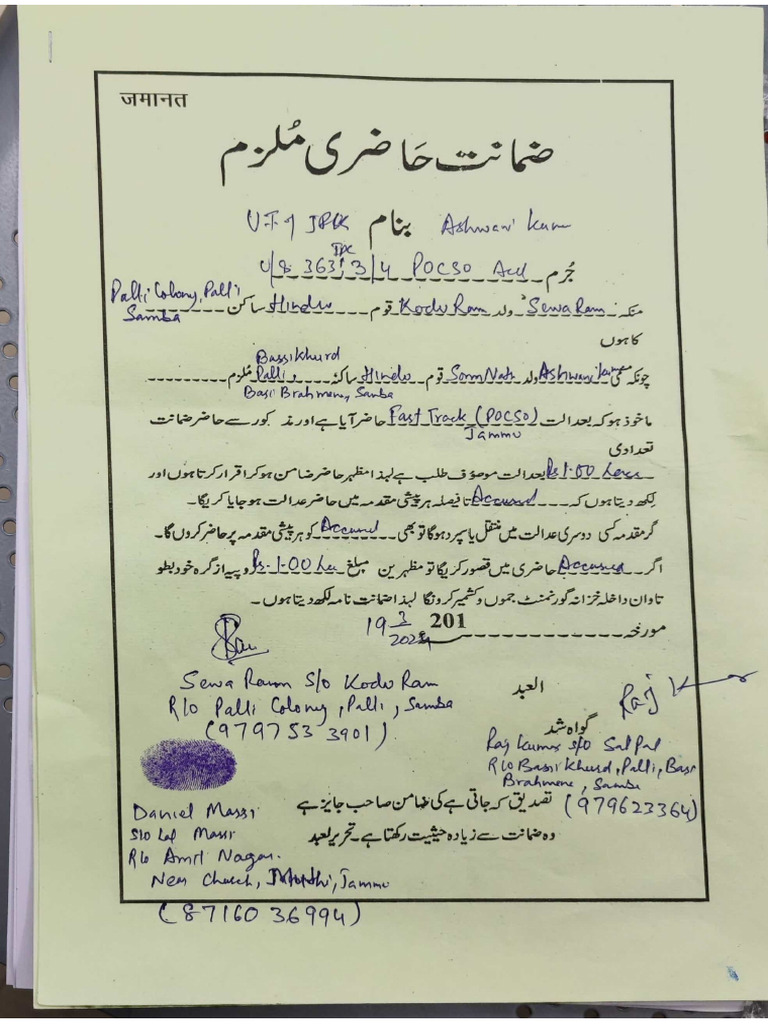 जमानत
ضمانت حاضری مُلزم
U.T of J&K بنام Ashwani Kumar
جُرم U/S 363 IPC 3/4 POCSO Act
منکہ Sewa Ram ولد Kodu Ram قوم Hindu ساکن Palli Colony, Palli Samba
کا ہوں
چونکہ کی Ashwani Kumar ولد Som Nath قوم Hindu ساکنہ Bassi Khurd Palli, Bari Brahmna, Samba ملزم
ماخوذ ہو کہ بعدالت Fast Track (POCSO) Jammu حاضر آیا ہے اور مذکور سے حاضر ضمانت
تعدادی
Rs 1.00 Lacs بعدالت موصوف طلب ہے لہذا مظہر حاضر ضامن ہو کر اقرار کرتا ہوں اور
لکھ دیتا ہوں کہ Accused تا فیصلہ ہر پیشی مقدمہ میں حاضر عدالت ہو جایا کریگا۔
گر مقدمہ کسی دوسری عدالت میں منتقل یا سپرد ہوگا تو بھی Accused کو ہر پیشی مقدمہ پر حاضر کروں گا۔
اگر Accused حاضری میں قصور کریگا تو مظہرین مبلغ Rs. 1.00 Lac روپیہ از گرہ خود بطو
تاوان داخلہ خزانہ گورنمنٹ جموں و کشمیر کرونگا لہذا ضمانت نامہ لکھ دیتا ہوں۔
مورخہ 201 19 3 2024
Sewa Ram S/o Kodu Ram
R/o Palli Colony, Palli, Samba
(979753 3901)
العبد
گواہ شد
Raj Kumar S/o Sat Pal
R/o Bassi Khurd, Palli, Bari
Brahmna, Samba
(979623364)
تصدیق کہ جاتی ہے کی ضامن صاحب جایز ہے
وہ ضمانت سے زیادہ حیثیت رکھتا ہے۔ تحریر لعبد
Daniel Massi
S/o Lal Massi
R/o Amrit Nagar.
Near Church, Muthi, Jammu
(87160 36994)